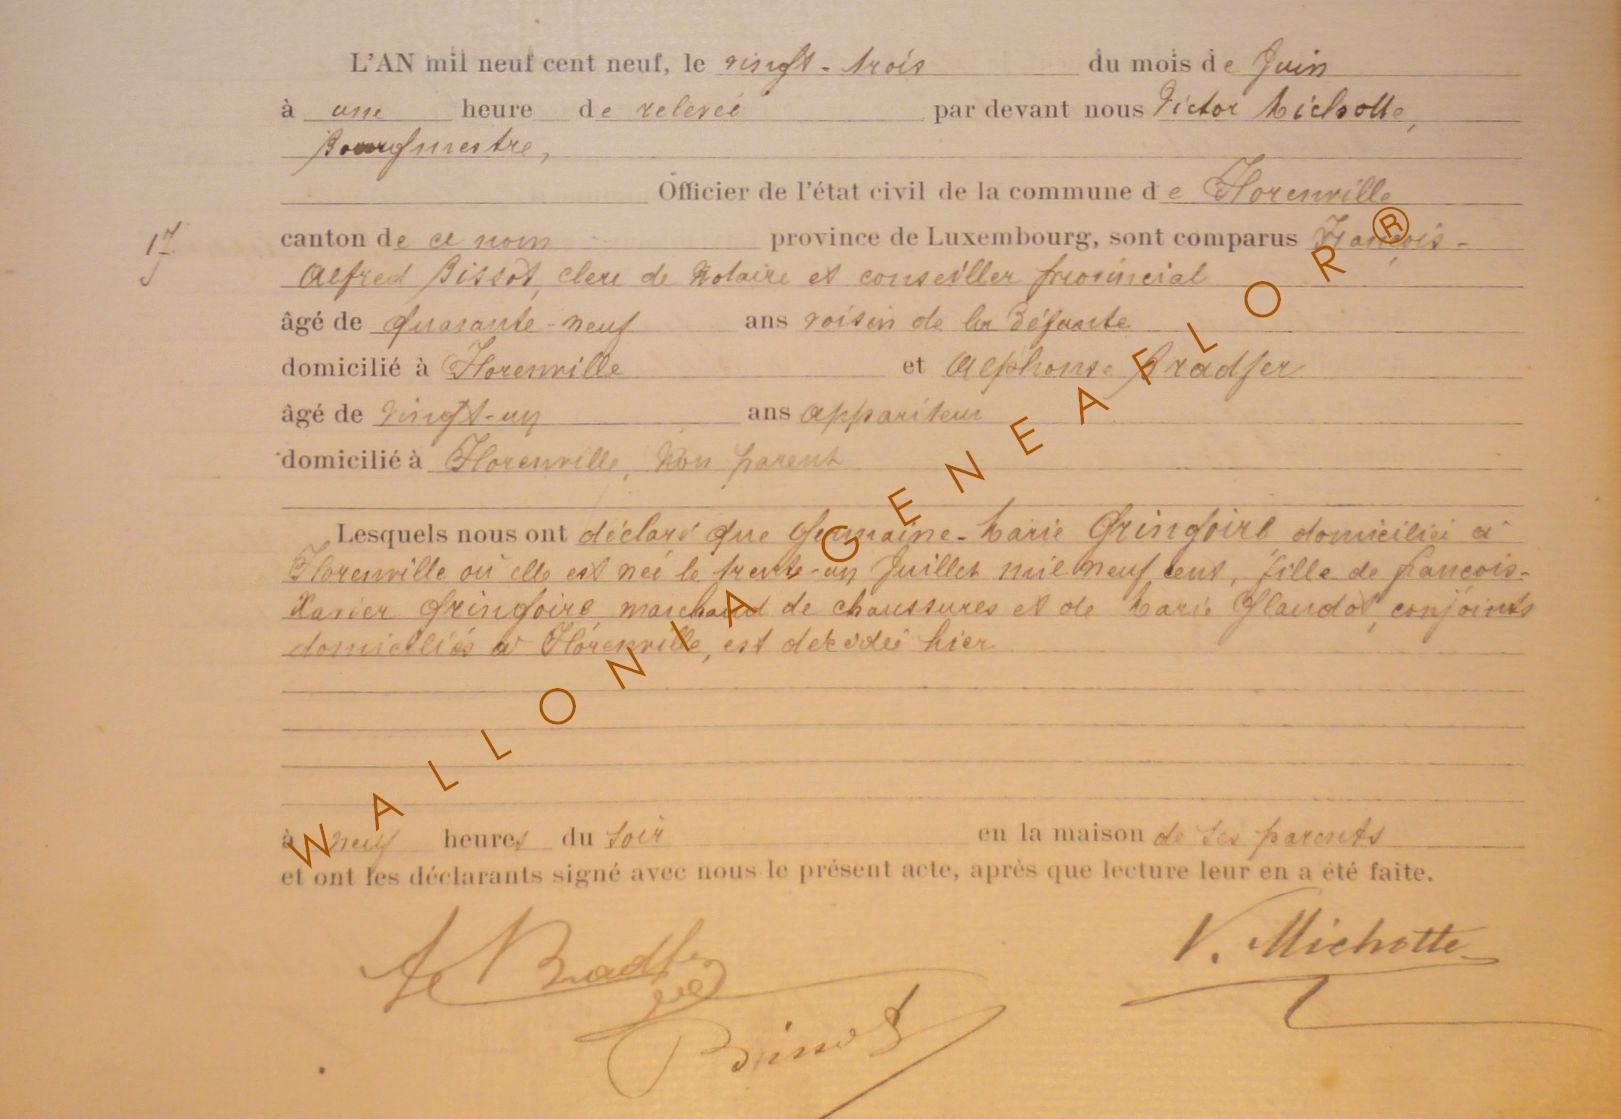 L'AN mil neuf cent neuf, le vingt-trois du mois de Juin
à une heure de relevée par devant nous Victor Michotte,
Bourgmestre,
Officier de l'état civil de la commune de Florenville
17
canton de ce nom province de Luxembourg, sont comparus François-
Alfred Bissot, clerc de Notaire et conseiller provincial
âgé de quarante-neuf ans voisin de la défunte
domicilié à Florenville et Alphonse Bradfer
âgé de vingt-un ans appariteur
domicilié à Florenville, Non parent
Lesquels nous ont déclaré que Germaine-Marie Gringoire domiciliée à
Florenville où elle est née le trente-un Juillet mil neuf cent, fille de françois-
Xavier Gringoire marchand de chaussures et de Marie Glaudot, conjoints
domiciliés à Florenville, est décédée hier
à neuf heures du soir en la maison de ses parents
et ont les déclarants signé avec nous le présent acte, après que lecture leur en a été faite.
V. Michotte
Bradfer
Bissot
WALLONIA GENEAFLOR®